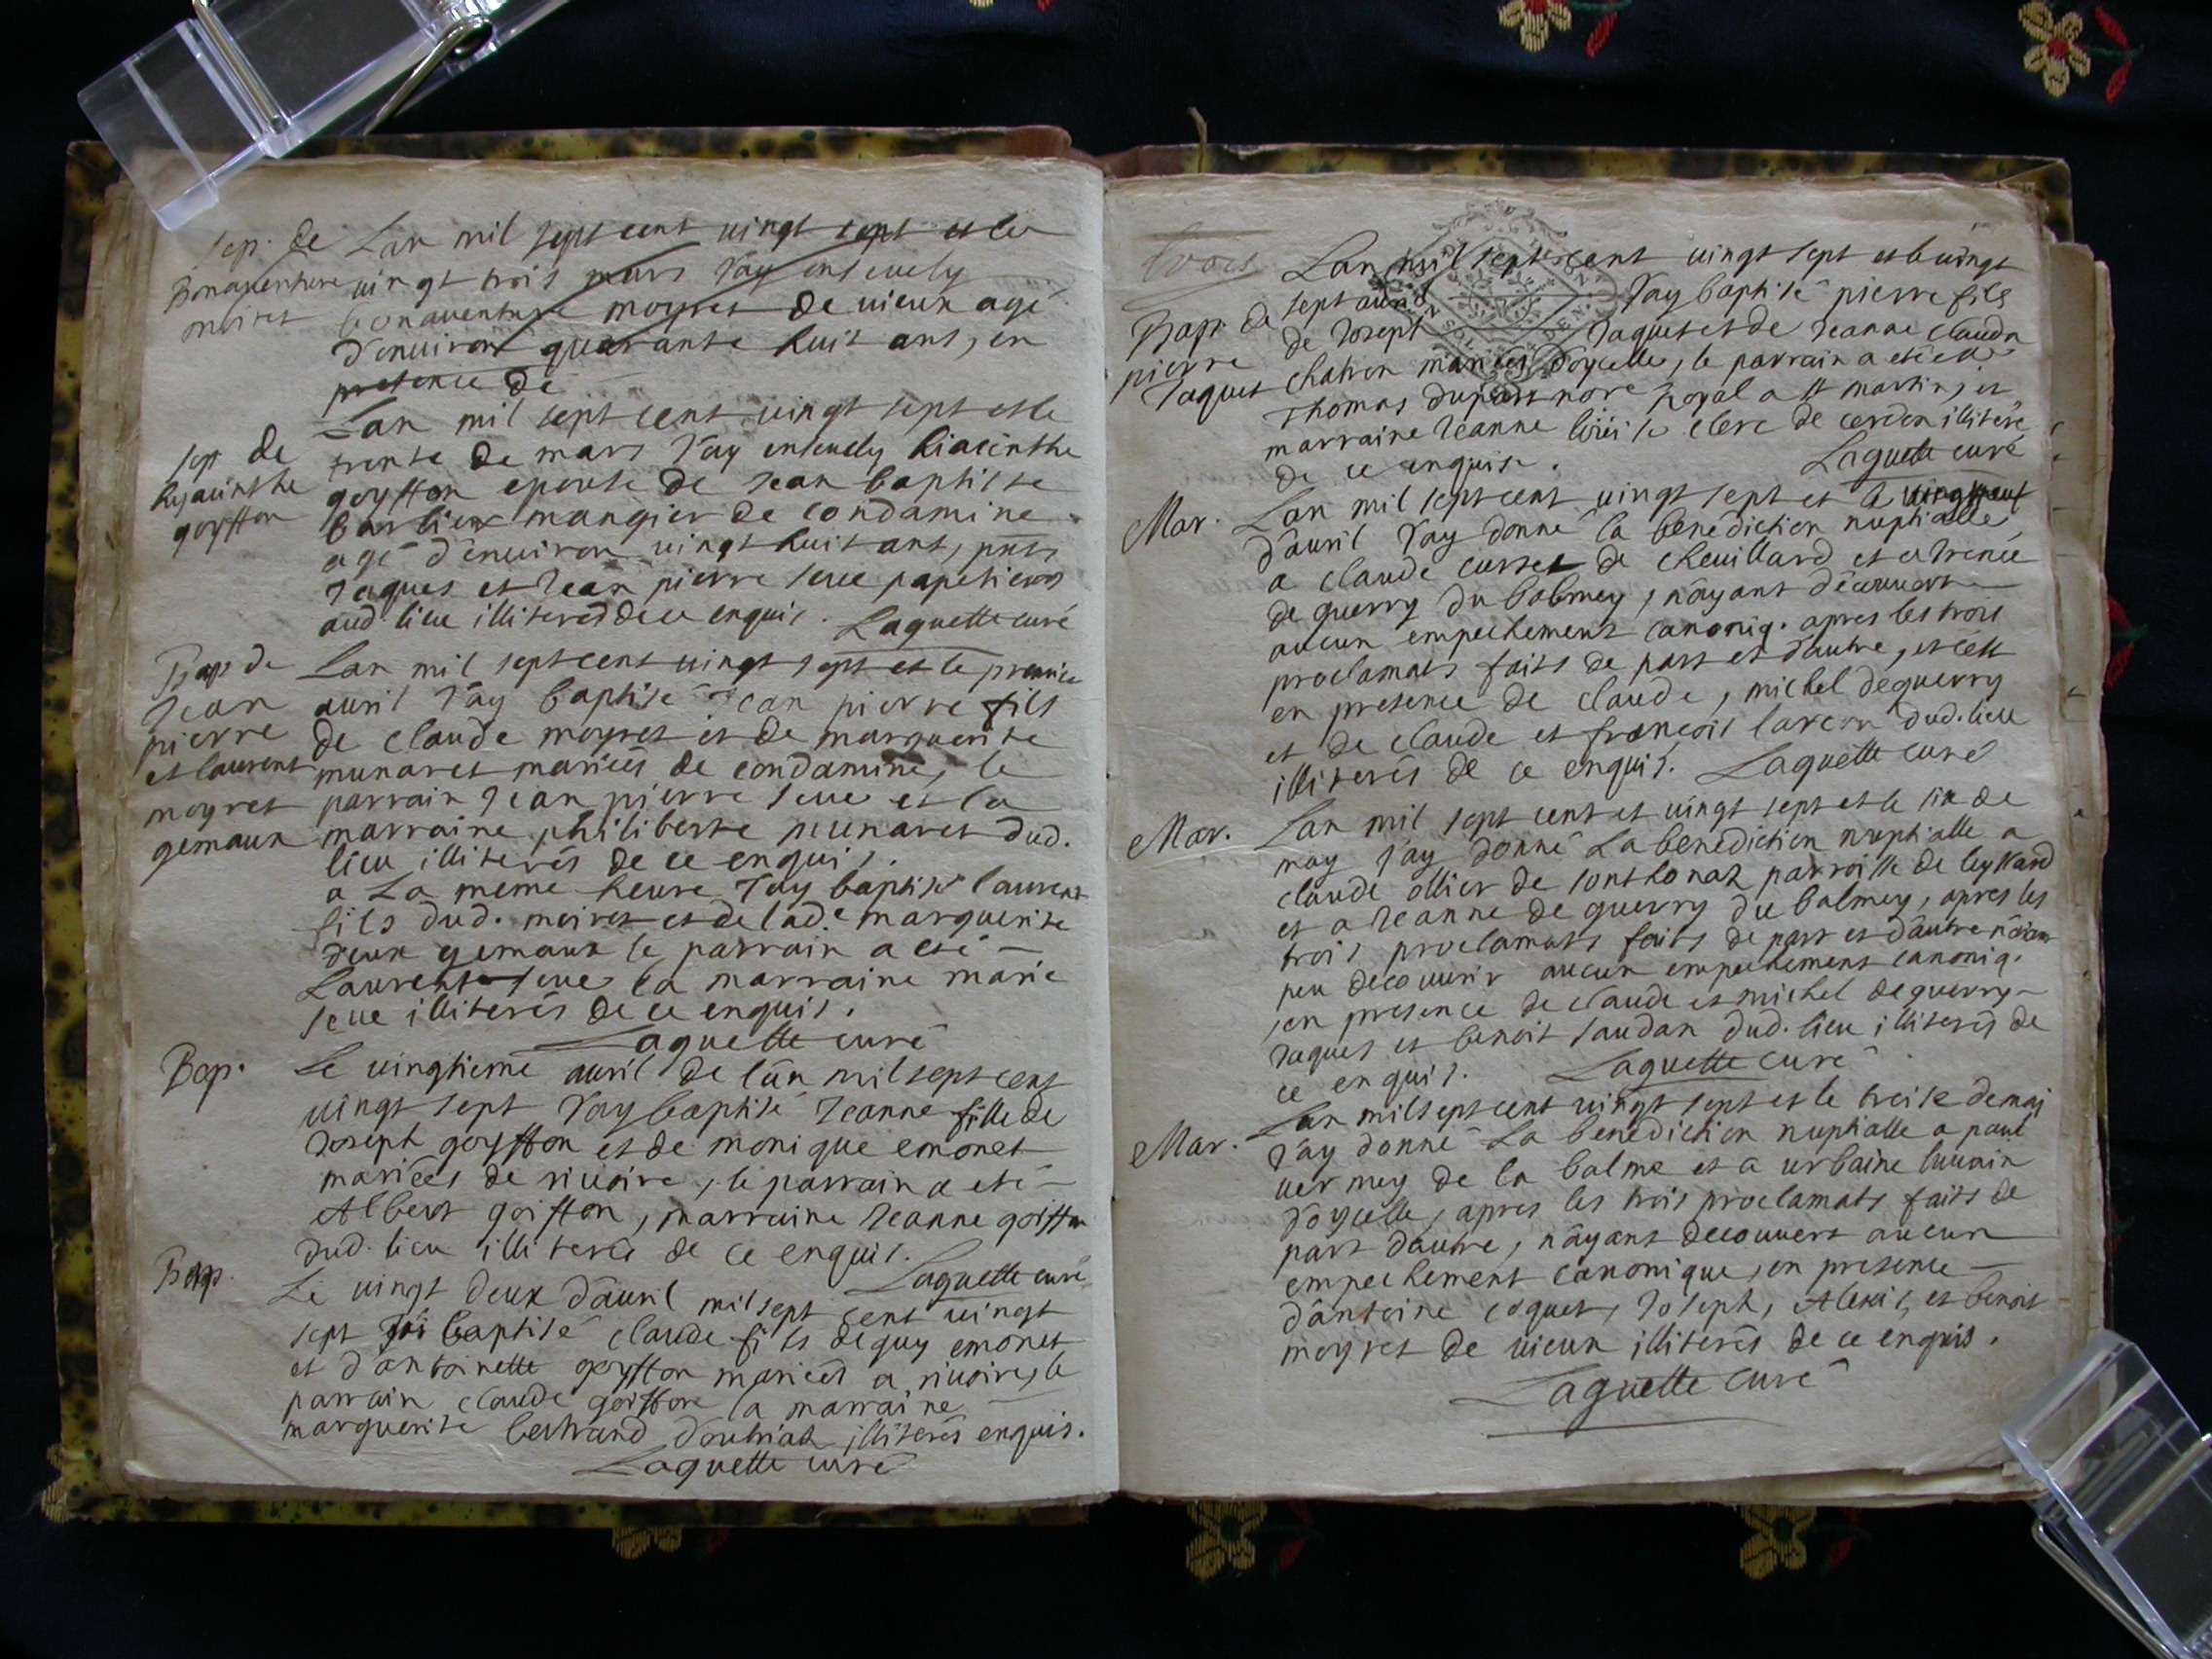 sep. de
Bonaventure
moiret
Lan mil sept cent vingt sept et le
vingt trois mars J'ay ensevely
bonaventure moyret de vieux agé
d'environ quarante huit ans, en
presence de
sep de
hyacinthe
goyffon
Lan mil sept cent vingt sept et le
trente de mars J'ay ensevely hiacinthe
goyffon epouse de Jean baptiste
mangier de condamine
agé d'environ vingt huit ans, pnts
Jaques et Jean pierre seve papetiers
aud. lieu illiterés de ce enquis. Laguette curé
Bap de
Jean
pierre
et laurent
moyret
gemaux
Lan mil sept cent vingt sept et le premier
avril J'ay baptisé Jean pierre fils
de claude moyret et de marguerite
munaret mariés de condamine, le
parrain Jean pierre seve et la
marraine philiberte munaret dud.
lieu illiterés de ce enquis.
a La meme heure J'ay baptisé laurent
fils dud. moiret et de lade marguerite
deux gemaux le parrain a eté
Laurent seve la marraine marie
seve illiterés de ce enquis.
Laguette curé
Bap.
Le vingtieme avril de l'an mil sept cent
vingt sept J'ay baptisé Jeanne fille de
Joseph goyffon et de monique emonet
mariés de rivoire, le parrain a eté
Albert goiffon, marraine Jeanne goiffon
dud. lieu illiterés de ce enquis.
Laguette curé
Bap.
Le vingt deux d'avril mil sept cent vingt
sept J'ai baptisé claude fils de guy emonet
et d'antoinette goyffon mariés a rivoire, le
parrain claude goiffon la marraine
marguerite bertrand d'outriaz illiterés enquis.
Laguette curé
trois
Bap. de
pierre
Jaquet
Lan mil sept cent vingt sept et le vingt
sept avril J'ay baptisé pierre fils
de Joseph Jaquet et de Jeanne clauda
chatron mariés d'oyselle, le parrain a eté
Thomas dupart nore royal a st martin, et
marraine Jeanne clerc de cerdon illiteré
de ce enquise.
Laguette curé
Mar.
Lan mil sept cent vingt sept et le vingt neuf
d'avril J'ay donné la benediction nuptialle
a claude cusset de chevillard et a
de guerry du balmey, n'ayant decouvert
aucun empechement canoniq. apres les trois
proclamats faits de part et d'autre, et c'est
en presence de claude, michel deguerry
et de claude et françois dud. lieu
illiterés de ce enquis. Laguette curé
Mar.
Lan mil sept cent et vingt sept et le six de
may J'ay donné La benediction nuptialle a
claude ollier de sonthonaz parroisse de leyssard
et a Jeanne de guerry du balmey, apres les
trois proclamats faits de part et d'autre n'aiant
peu decouvrir aucun empechement canoniq.
en presence de claude et michel deguerry
Jaques et benoit saudan dud. lieu illiterés de
ce enquis. Laguette curé
Mar.
Lan mil sept cent vingt sept et le treise de mai
J'ay donné La benediction nuptialle a paul
vermey de la balme et a urbaine
d'oyselle, apres les trois proclamats faits de
part d'autre, n'ayant decouvert aucun
empechement canonique, en presence
d'antoine coquet, Joseph, Alexis, et benoit
moyret de vieux illiterés de ce enquis.
Laguette curé